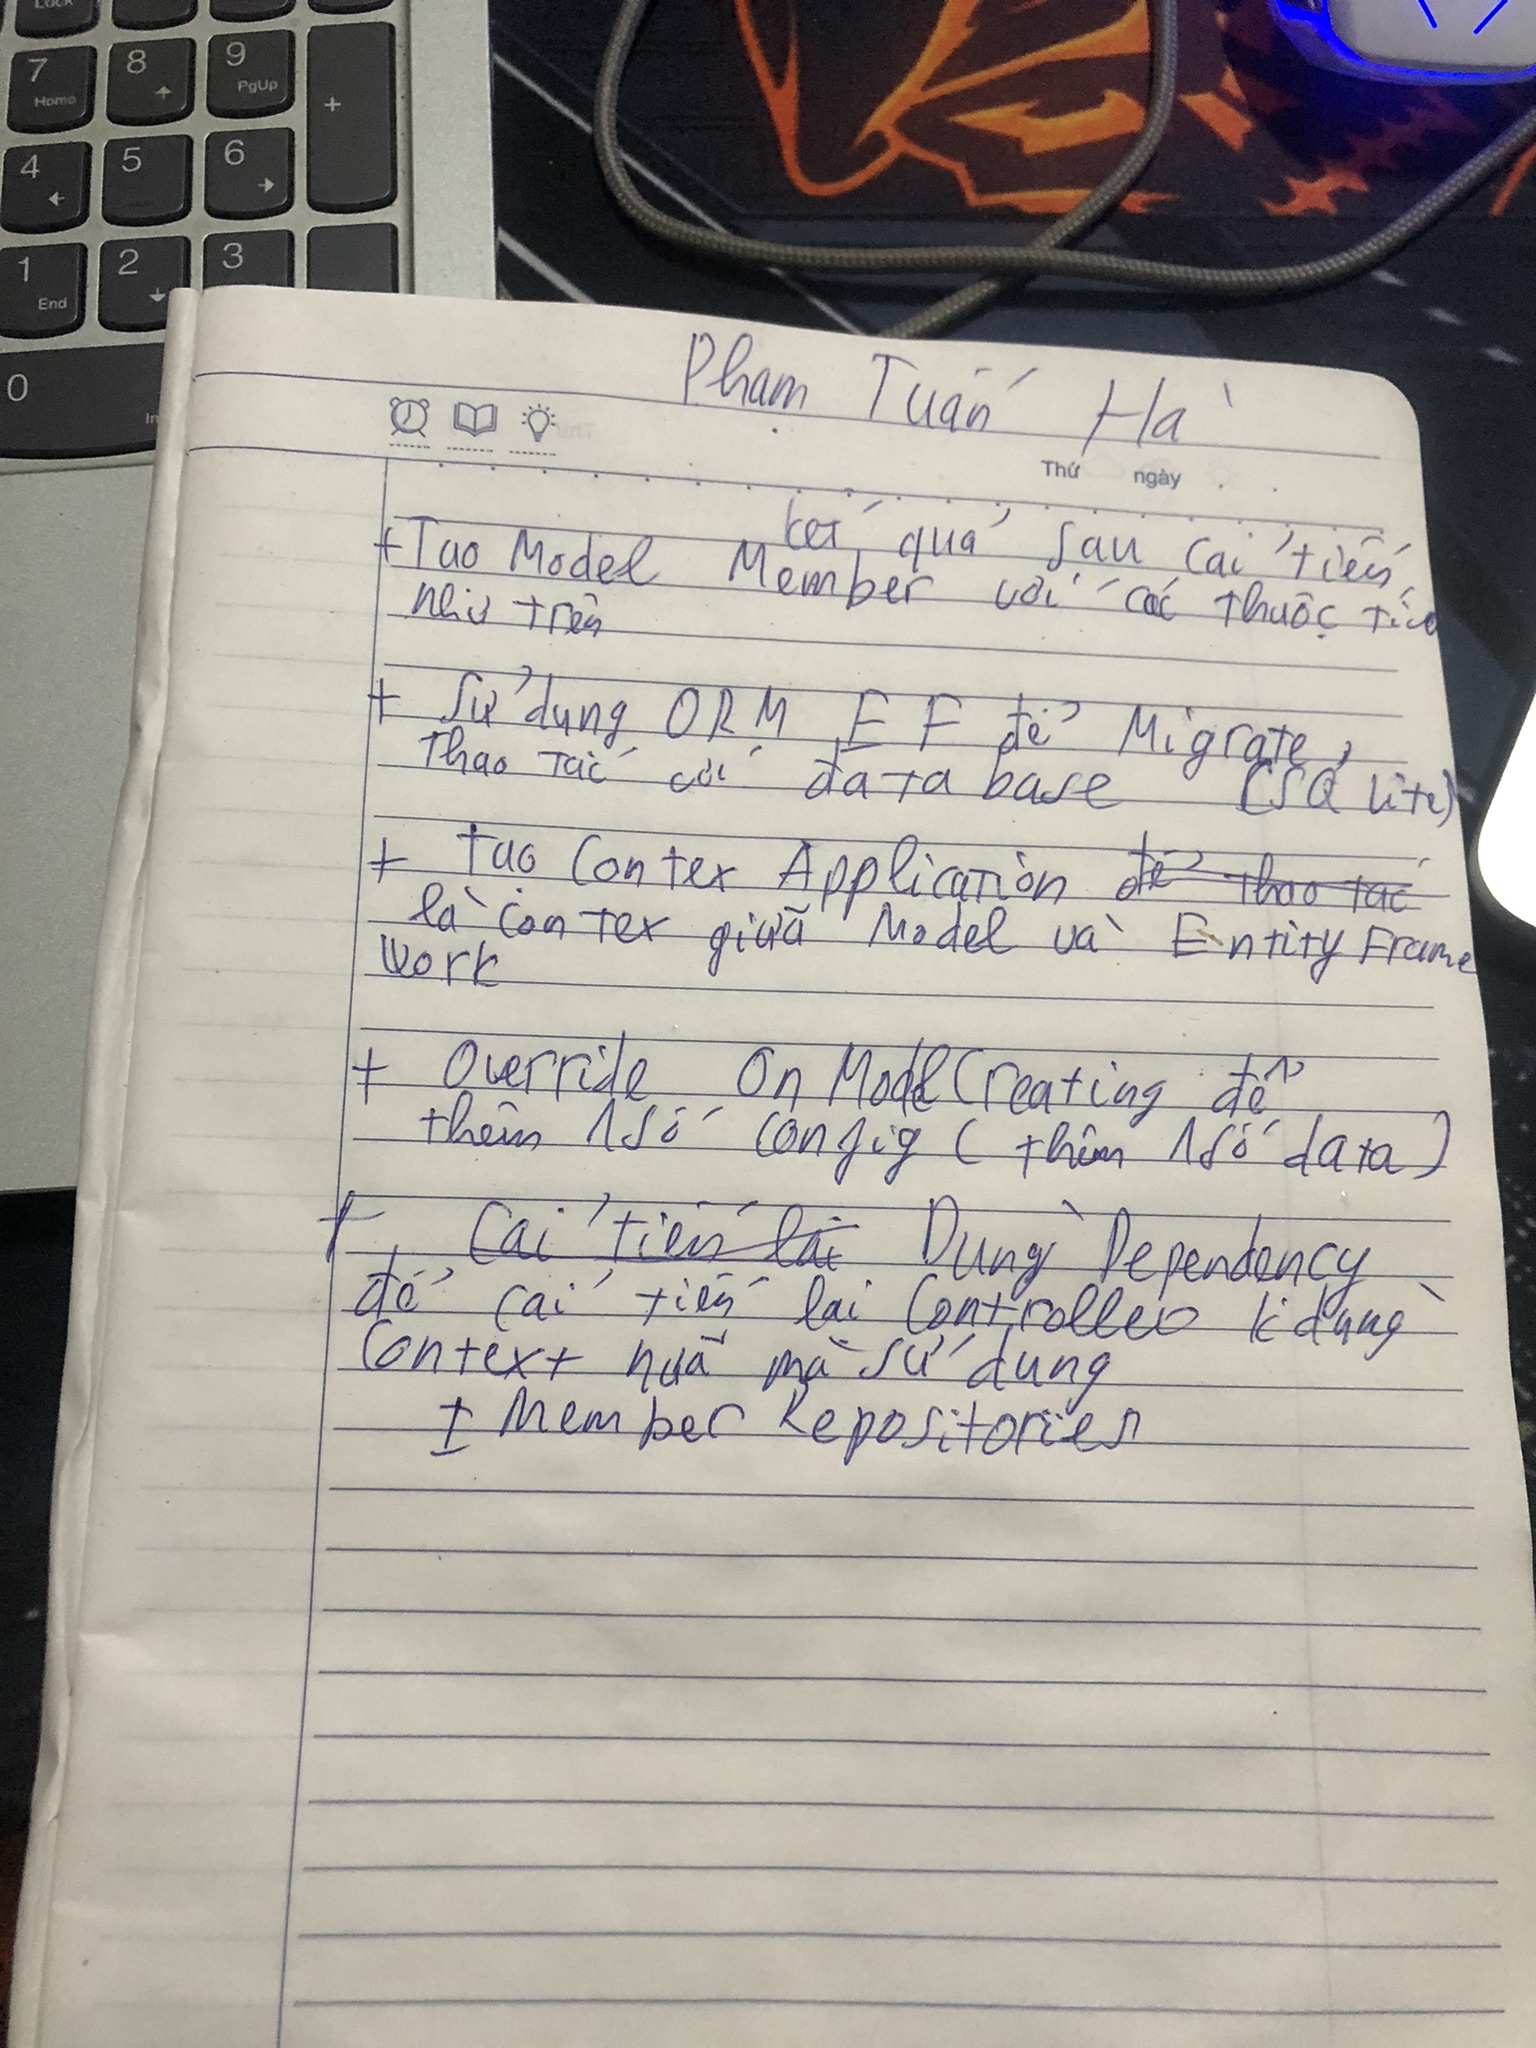 Lock
7 Home
8
9 PgUp
+
4
5
6
1 End
2
3
0
In
Phạm Tuấn Hà
Thứ ngày
kết quả sau cải tiến
+ Tạo Model Member với các thuộc tính
như trên
+ Sử dụng ORM EF để Migrate,
Thao tác với database (SQLite)
+ tạo Contex Application để thao tác
là contex giữa Model và Entity Frame
Work
+ Override OnModelCreating để
thêm 1 số config (thêm 1 số data)
+ Cải tiến lại Dùng Dependency
để cải tiến lại Controller k dùng
Context nữa mà sử dụng
I Member Repositories